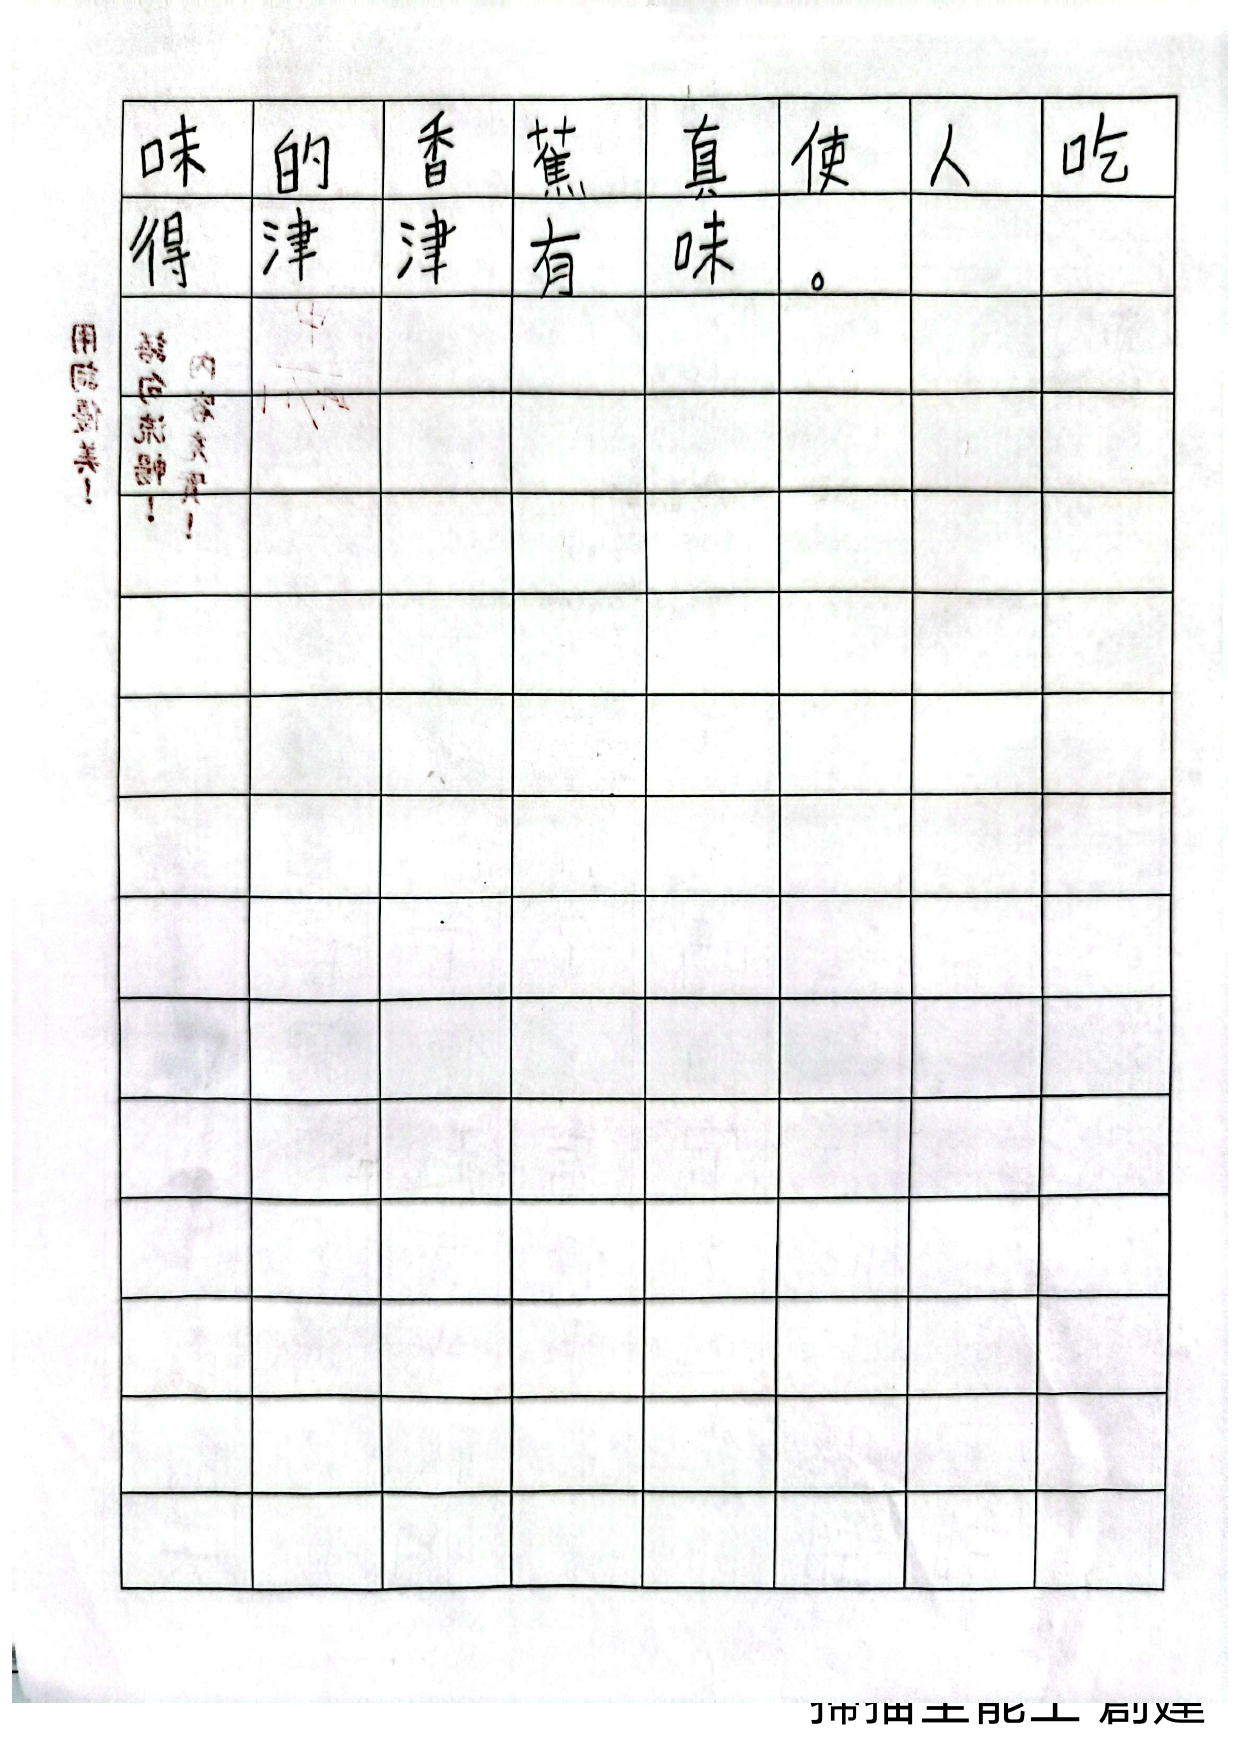 味的香蕉真使人吃
得津津有味。
用詞優美！
語句流暢！
內容充實！
掃描全能王 創建